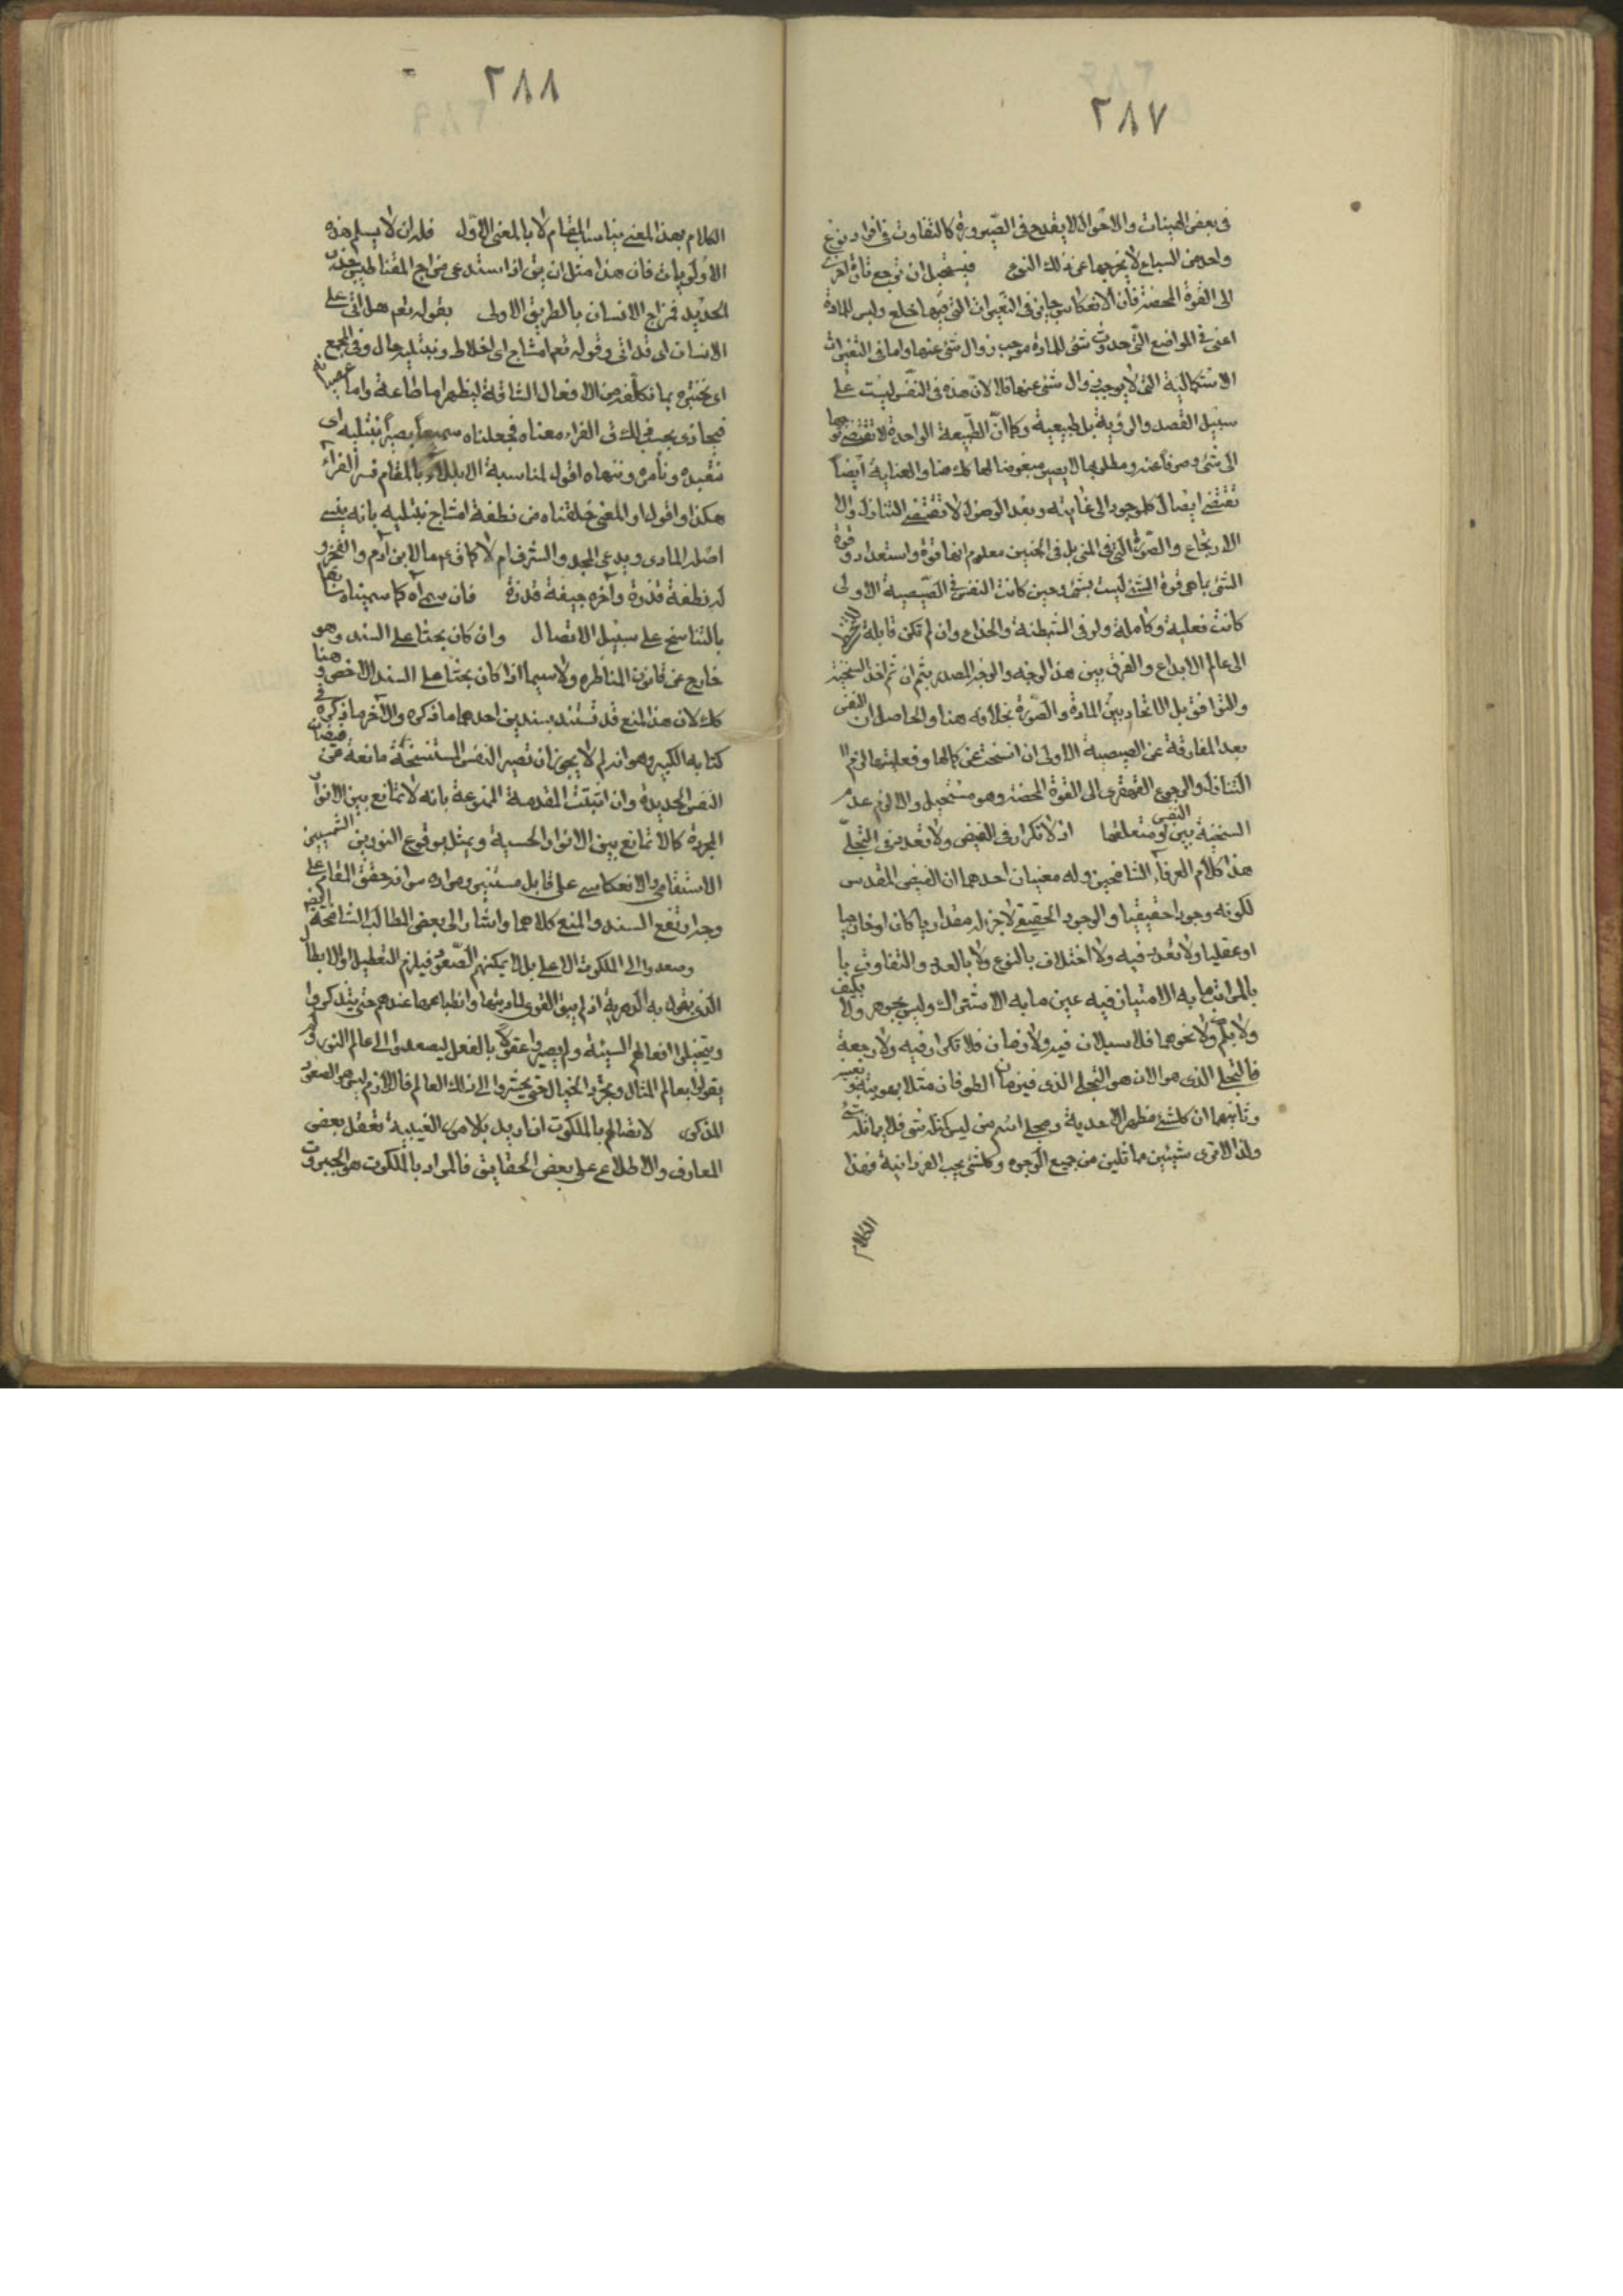 ٢٨٧
فى بعض الهيئات والاحوال لا يقدح فى الصيرورة كالتفاوت فى افراد نوع
واحد من السباع لا يخرجها عن ذلك النوع فيستحيل ان ترجع تارة اخرى
الى القوة المحضة فان الانعكاس جايز فى التغيرات التى فيها خلع ولبس للمادة
اعنى فى المواضع التى حدوث شئ للمادة موجب زوال شئ عنها واما فى التغيرات
الاستكمالية التى لا يوجب زوال شئ عنها فلا لان هذه فى النفس ليست على
سبيل القصد والروية بل طبيعية وكما ان الطبيعة الواحدة لا تقتضى توجها
الى شئ وصرفا عنه ومطلوبها لا يصير مبغوضا لها كك هنا والعناية ايضا
تقتضى ايصال كل موجود الى غايته وبعد الوصول لا تقتضى التنازل ولا
الارتجاع والصورة التى فى المنى بل فى الجنين معلوم انها قوة واستعداد وقوة
الشئ بما هى قوة الشئ ليست بشئ وحين كانت النفس فى الصيصية الاولى
كانت فعلية وكاملة ولو فى الشيطنة والخداع وان لم تكن قابلة
الى عالم الابداع والفرق بين هذا الوجه والوجه المصدر بثم ان ثم اخذ السنخية
والتوافق بل الاتحاد بين المادة والصورة بخلافه هنا والحاصل ان النفس
بعد المفارقة عن الصيصية الاولى ان انسخت عن كمالها وفعليتها لزم
التنازل والرجوع القهقرى الى القوة المحضة وهو مستحيل والا لزم عدم
السنخية بين النفس ومتعلقها اذ لا تكرار فى الفيض ولا تعدد فى التجلى
هذا كلام العرفاء الشامخين وله معنيان احدهما ان الفيض المقدس
لكونه وجودا حقيقيا والوجود الحقيقى لا جزء له مقداريا كان او خارجيا
او عقليا ولا تعدد فيه ولا اختلاف بالنوع ولا بالعدد والتفاوت با
بالمراتب ما به الامتياز فيه عين ما به الاشتراك وليس بجوهر ولا بكيف
ولا بكم ولا نحوهما فلا سيلان فيه ولا زمان فلا تكرار فيه ولا رجعة
فالتجلى الذى هو الان هو التجلى الذى فى زمان الطوفان مثلا بهويته
وثانيهما ان كل شئ مظهر الاحدية ومجلى اسم من ليس كمثله شئ فلا يماثله شئ
ولذا لا ترى شيئين مماثلين من جميع الوجوه وكل شئ يحب الفردانية فهذا
الكلام
٢٨٨
الكلام بهذا المعنى يناسب المقام لا بالمعنى الاول فله ان لا يسلم هذه
الاولويات فان هذا مثل ان يق اذا استدعى مزاج المقناطيس جذب
الحديد فمزاج الانسان بالطريق الاولى بقوله تعم هل اتى على
الانسان اى قد اتى وقوله تعم امشاج اى اخلاط ونبتليه حال وفى المجمع
اى نختبره بما نكلفه من الافعال الشاقة ليظهر اما طاعة واما عصيانه
فيجازى بحسب ذلك ق الفراء معناه فجعلناه سميعا بصيرا نبتليه اى
نتعبده ونأمره وننهاه اقول لمناسبة الابتلاء بالمقام فسر الفراء
هكذا واقول او المعنى خلقناه من نطفة امشاج نبتليه بانه ينسى
اصله المادى ويدعى المجد والشرف ام لا كما ق ع ما لابن آدم والفخر و
له نطفة قذرة وآخره جيفة قذرة فان سماه كما سميناه سابقا
بالتناسخ على سبيل الاتصال وان كان بحثا على السند وهو
خارج عن قانون المناظره ولا سيما اذا كان بحثا على السند الاخص وهنا
كك لان هذا المنع قد تستند بسندين احدهما ما ذكره والآخر ما ذكره فى
كتابه الكبير وهو انه لم لا يجوز ان تصير النفس المستنسخة مانعة من فيضان
النفس الجديدة وان اثبتت المقدمة الممنوعة بانه لا تمانع بين الانوار
المجردة كما لا تمانع بين الانوار الحسية ويمثل بوقوع النورين الشمسيين
الاستقامى والانعكاسى على قابل مستنير ومراده س انه حقق المقام على
وجه ارتفع السند والمنع كلاهما واشار الى بعض المطالب الشامخة ايضا
وصعدوا الى الملكوت الاعلى بل لا يمكنهم الصعود فيلزم التعطيل او الابطال
الذى يقول به الدهرية اذ لم يبق القوى لماديتها وانطباعها عندهم حتى يتذكروا
ويتخيلوا افعالهم السيئة ولم يصيروا عقولا بالفعل ليصعدوا الى عالم النور ولم
يقولوا بعالم المثال وتجرد الخيال حتى يحشروا الى ذلك العالم فاللازم ليس هو الصعود
المذكور لاتصالهم بالملكوت ان اريد بالامور الغيبية تعقل بعض
المعارف والاطلاع على بعض الحقايق فالمراد بالملكوت هو الجبروت